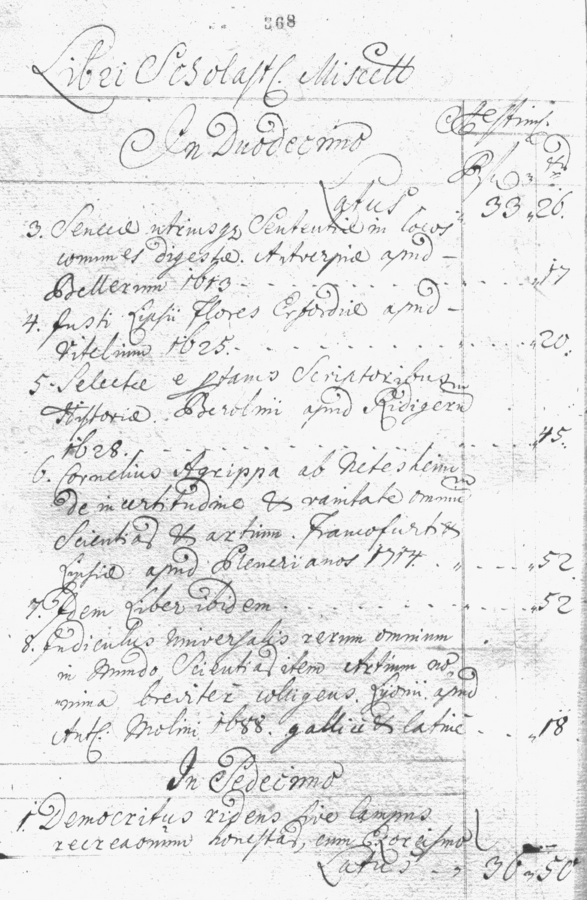 368
Libri Scholast. Miscell
In Duodecimo
Æstim.
Latus " 33 " 26.
3. Senecæ utriusq3 Sententiæ in locos
comunes digestæ. Antverpiæ apud -
Bellerum 1613 - - - - - - " 17
4. Justi Lipsii Flores Erfordiæ apud -
Vitelium 1625. - - - - - - " 20.
5. Selectæ e Scriptoribus
Historiæ. Berolini apud Ridigerū
1628. - - - - - - " 45.
6. Cornelius Agrippa ab Netesheim
de incertitudine & vanitate omniū
Scientiar & artium. Francofurti &
Lipsiæ apud 1714. - - - - " 52
7. Idem Liber ibidem - - - - - " 52
8. Indiculus Universalis rerum omnium
in Mundo Scientiar item Artium no
mina breviter colligens. Lydnii apud
Ant. Molini 1688. gallicè & latinè - - " 18
In Sedecimo
1. Democritus ridens sive Campus
recreaonum honestar, cum Exorcismo
Latus - " 36 " 50